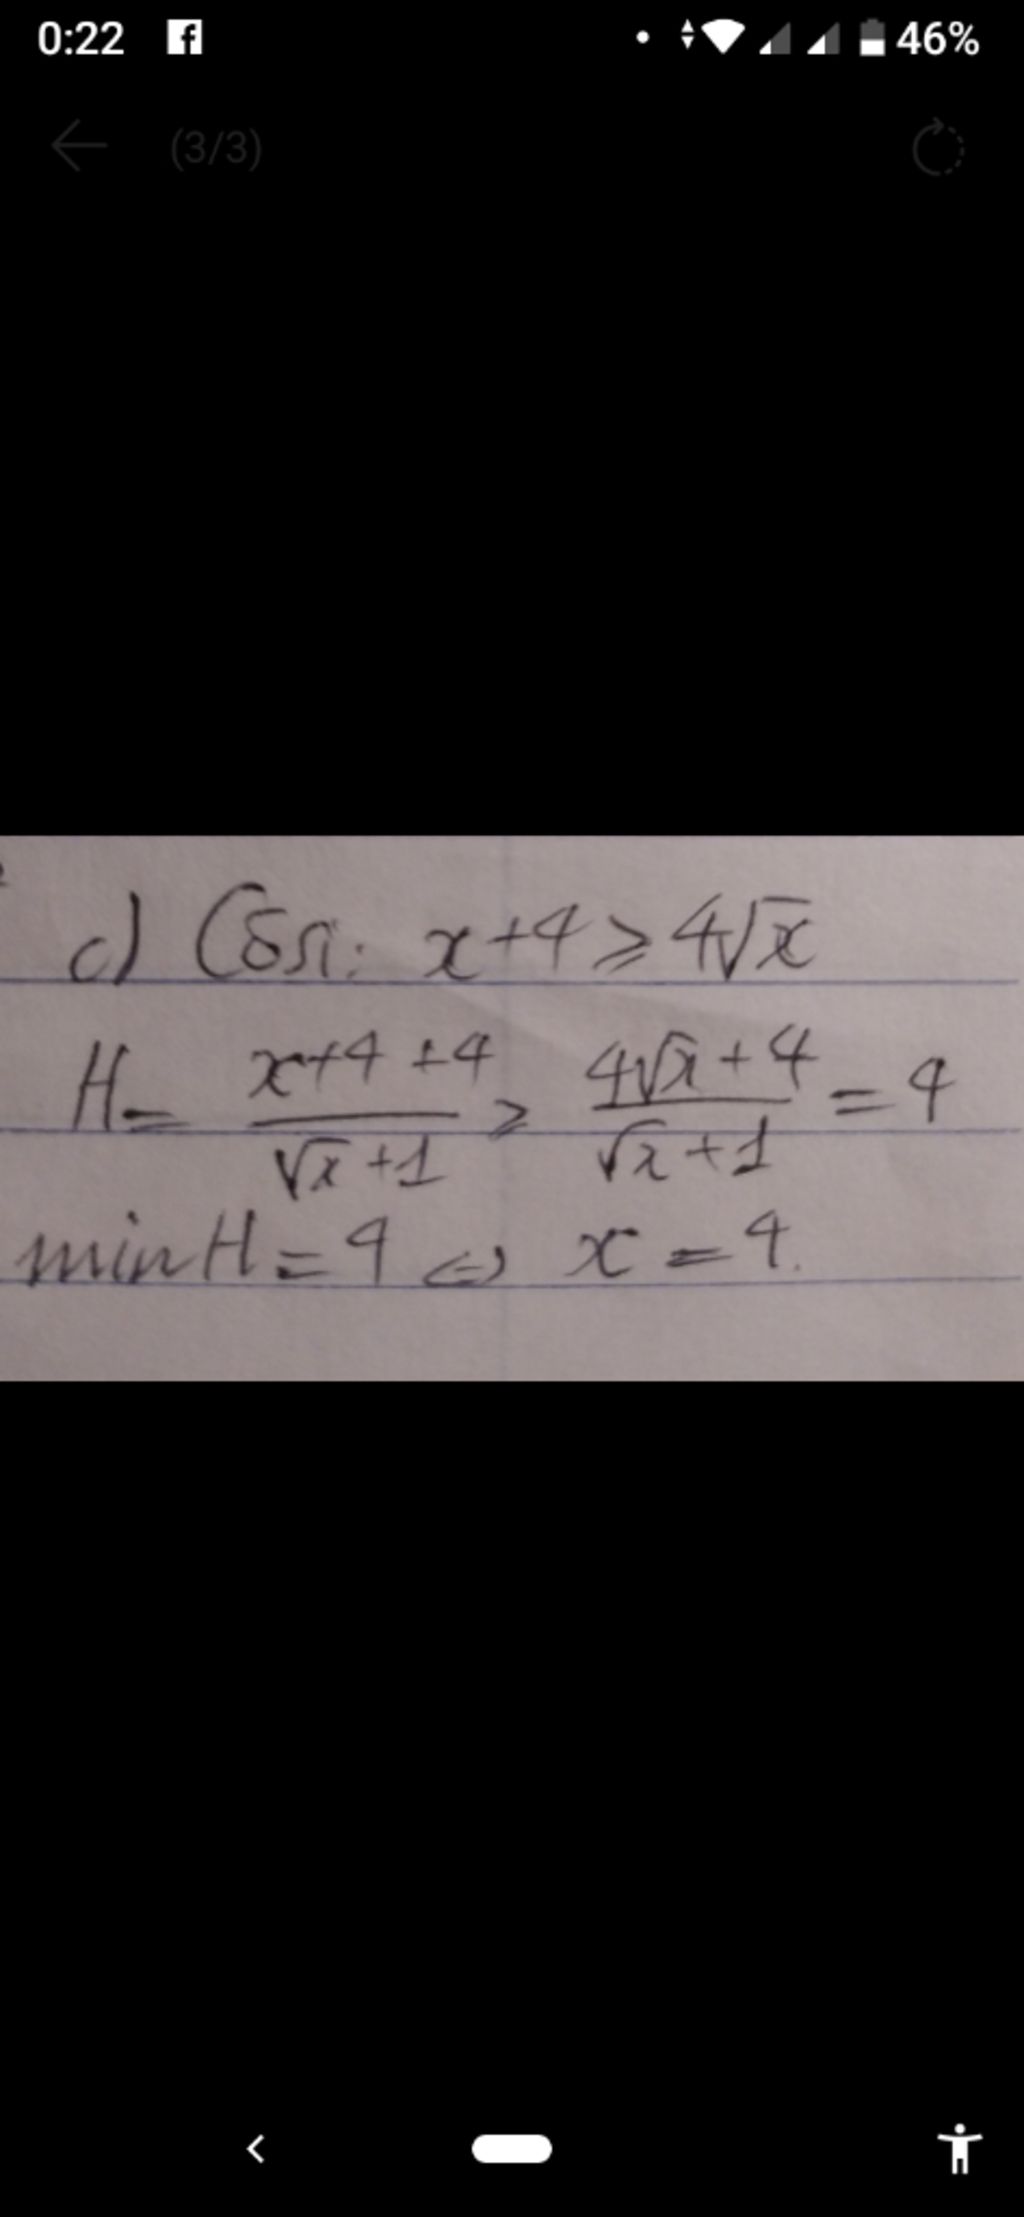 0:22 46%
(3/3)
c) Côsi: x+4 ⩾ 4√x
H = (x+4+4)/(√x+1) ⩾ (4√x+4)/(√x+1) = 4
min H = 4 ⇔ x = 4.